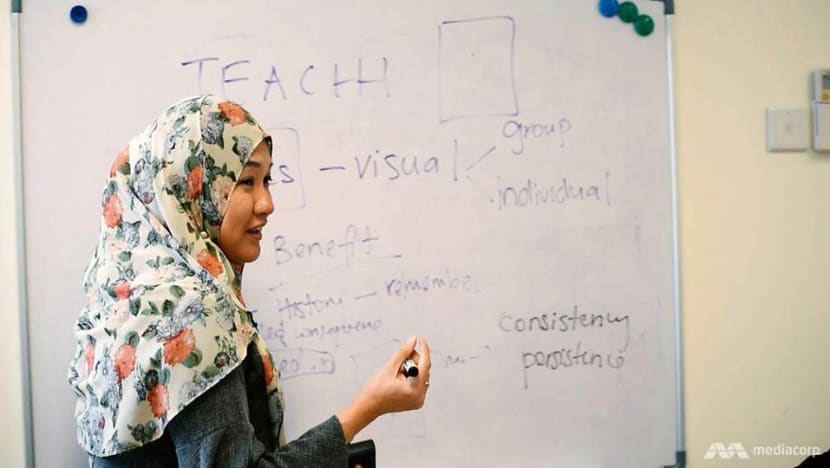 TEACHH
– visual
group
individual
Benefit
History – remember
consistency
persistence
mediacorp